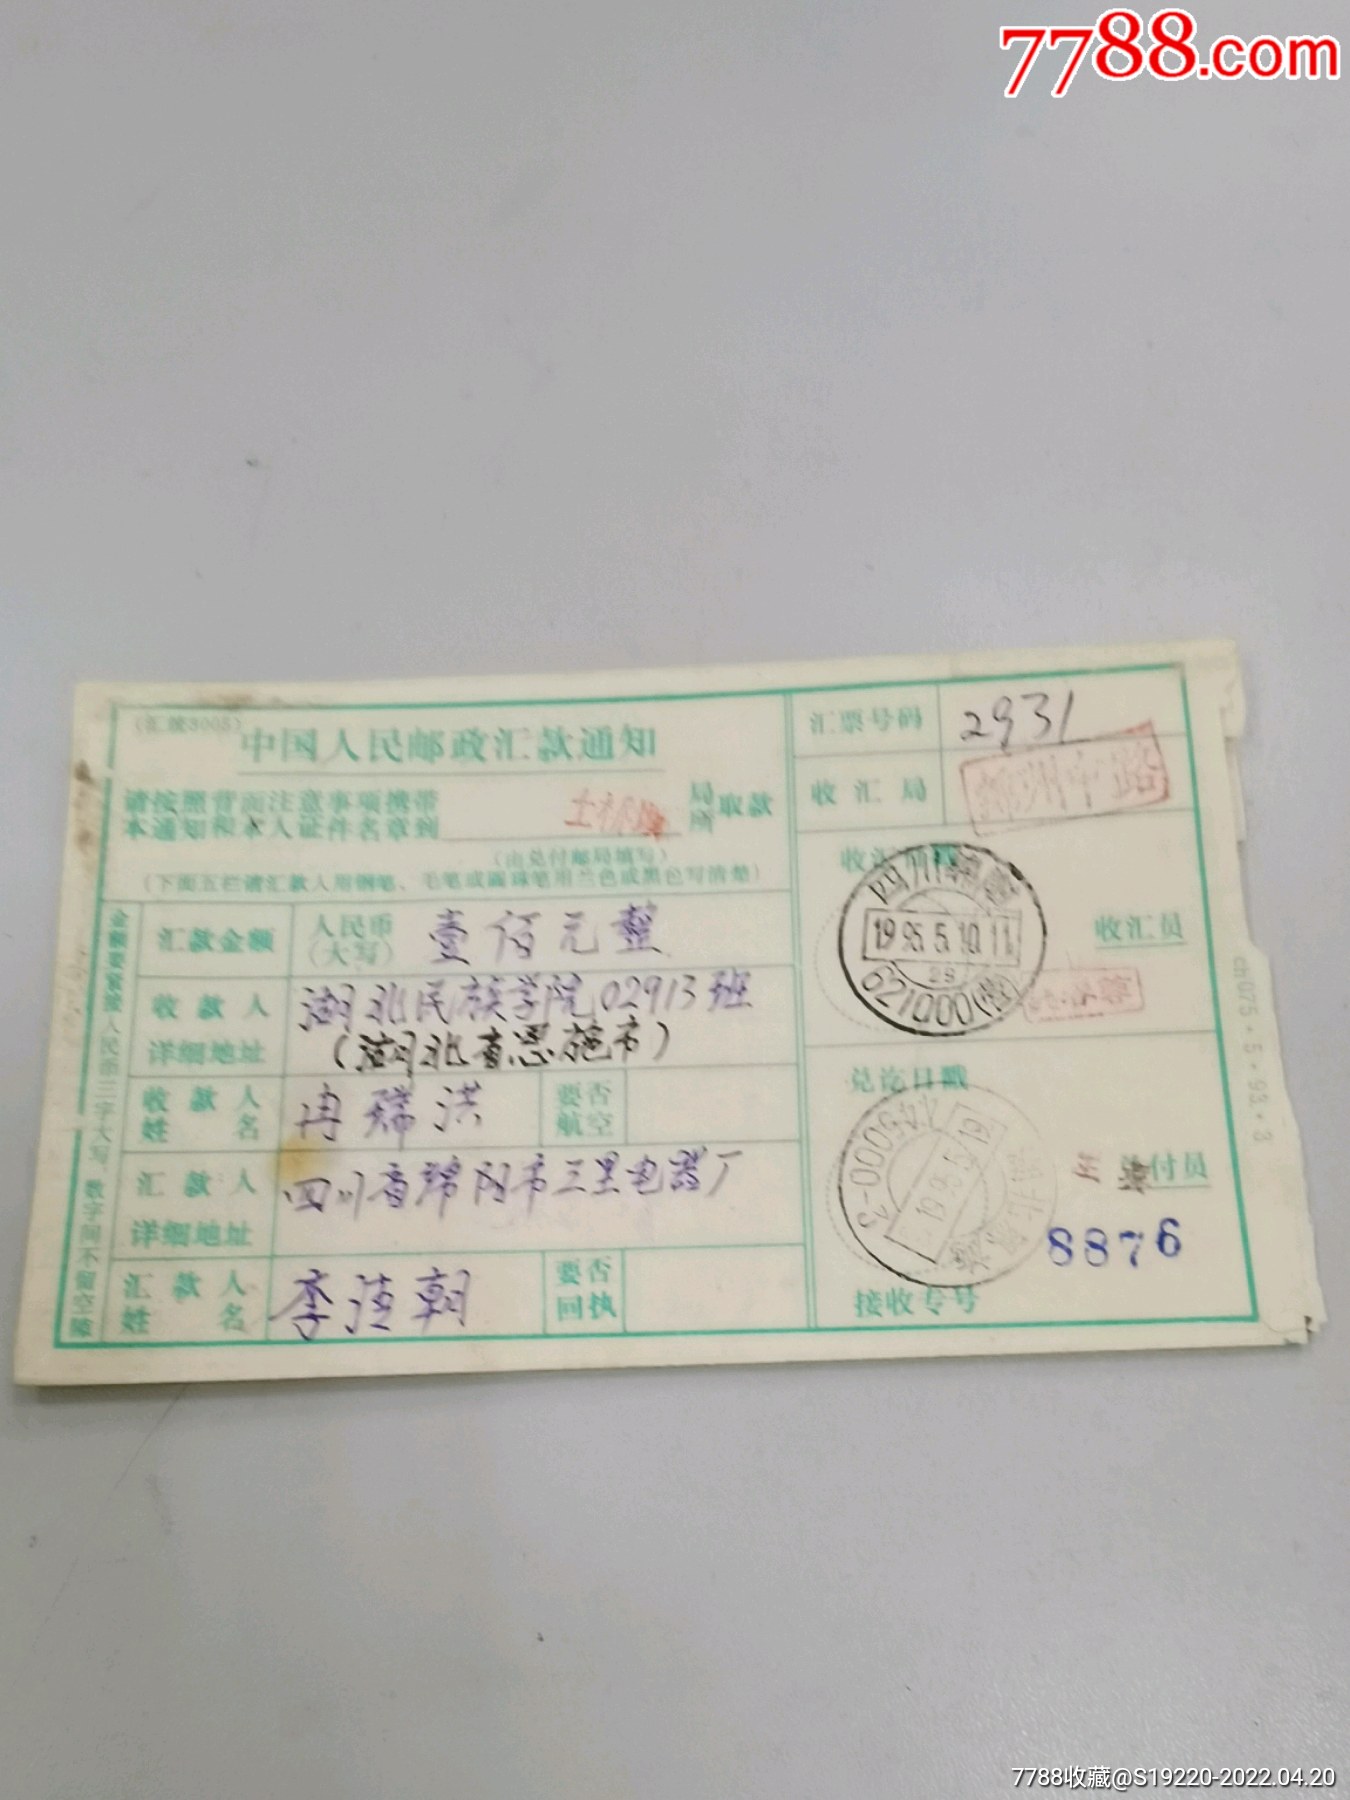 7788.com
(汇规3005)
中国人民邮政汇款通知
请按照背面注意事项携带
本通知和本人证件名章到 土桥坝 局所取款
(由兑付邮局填写)
(下面五栏请汇款人用钢笔、毛笔或圆珠笔用兰色或黑色写清楚)
金额要紧接人民币三字大写，数字间不留空隙
汇款金额 人民币(大写) 壹佰元整
收款人详细地址 湖北民族学院02913班
(湖北省恩施市)
收款人姓名 冉瑞洪 要否航空
汇款人详细地址 四川省绵阳市三星电器厂
汇款人姓名 李洁朝 要否回执
汇票号码 2931
收汇局
收汇
四川绵阳
1995.5.10.11
29
621000
收汇员
兑讫日戳
1995.5.19
445000-2
湖北恩施
付员
8876
接收专号
ch075·5·93·3
7788收藏@S19220-2022.04.20